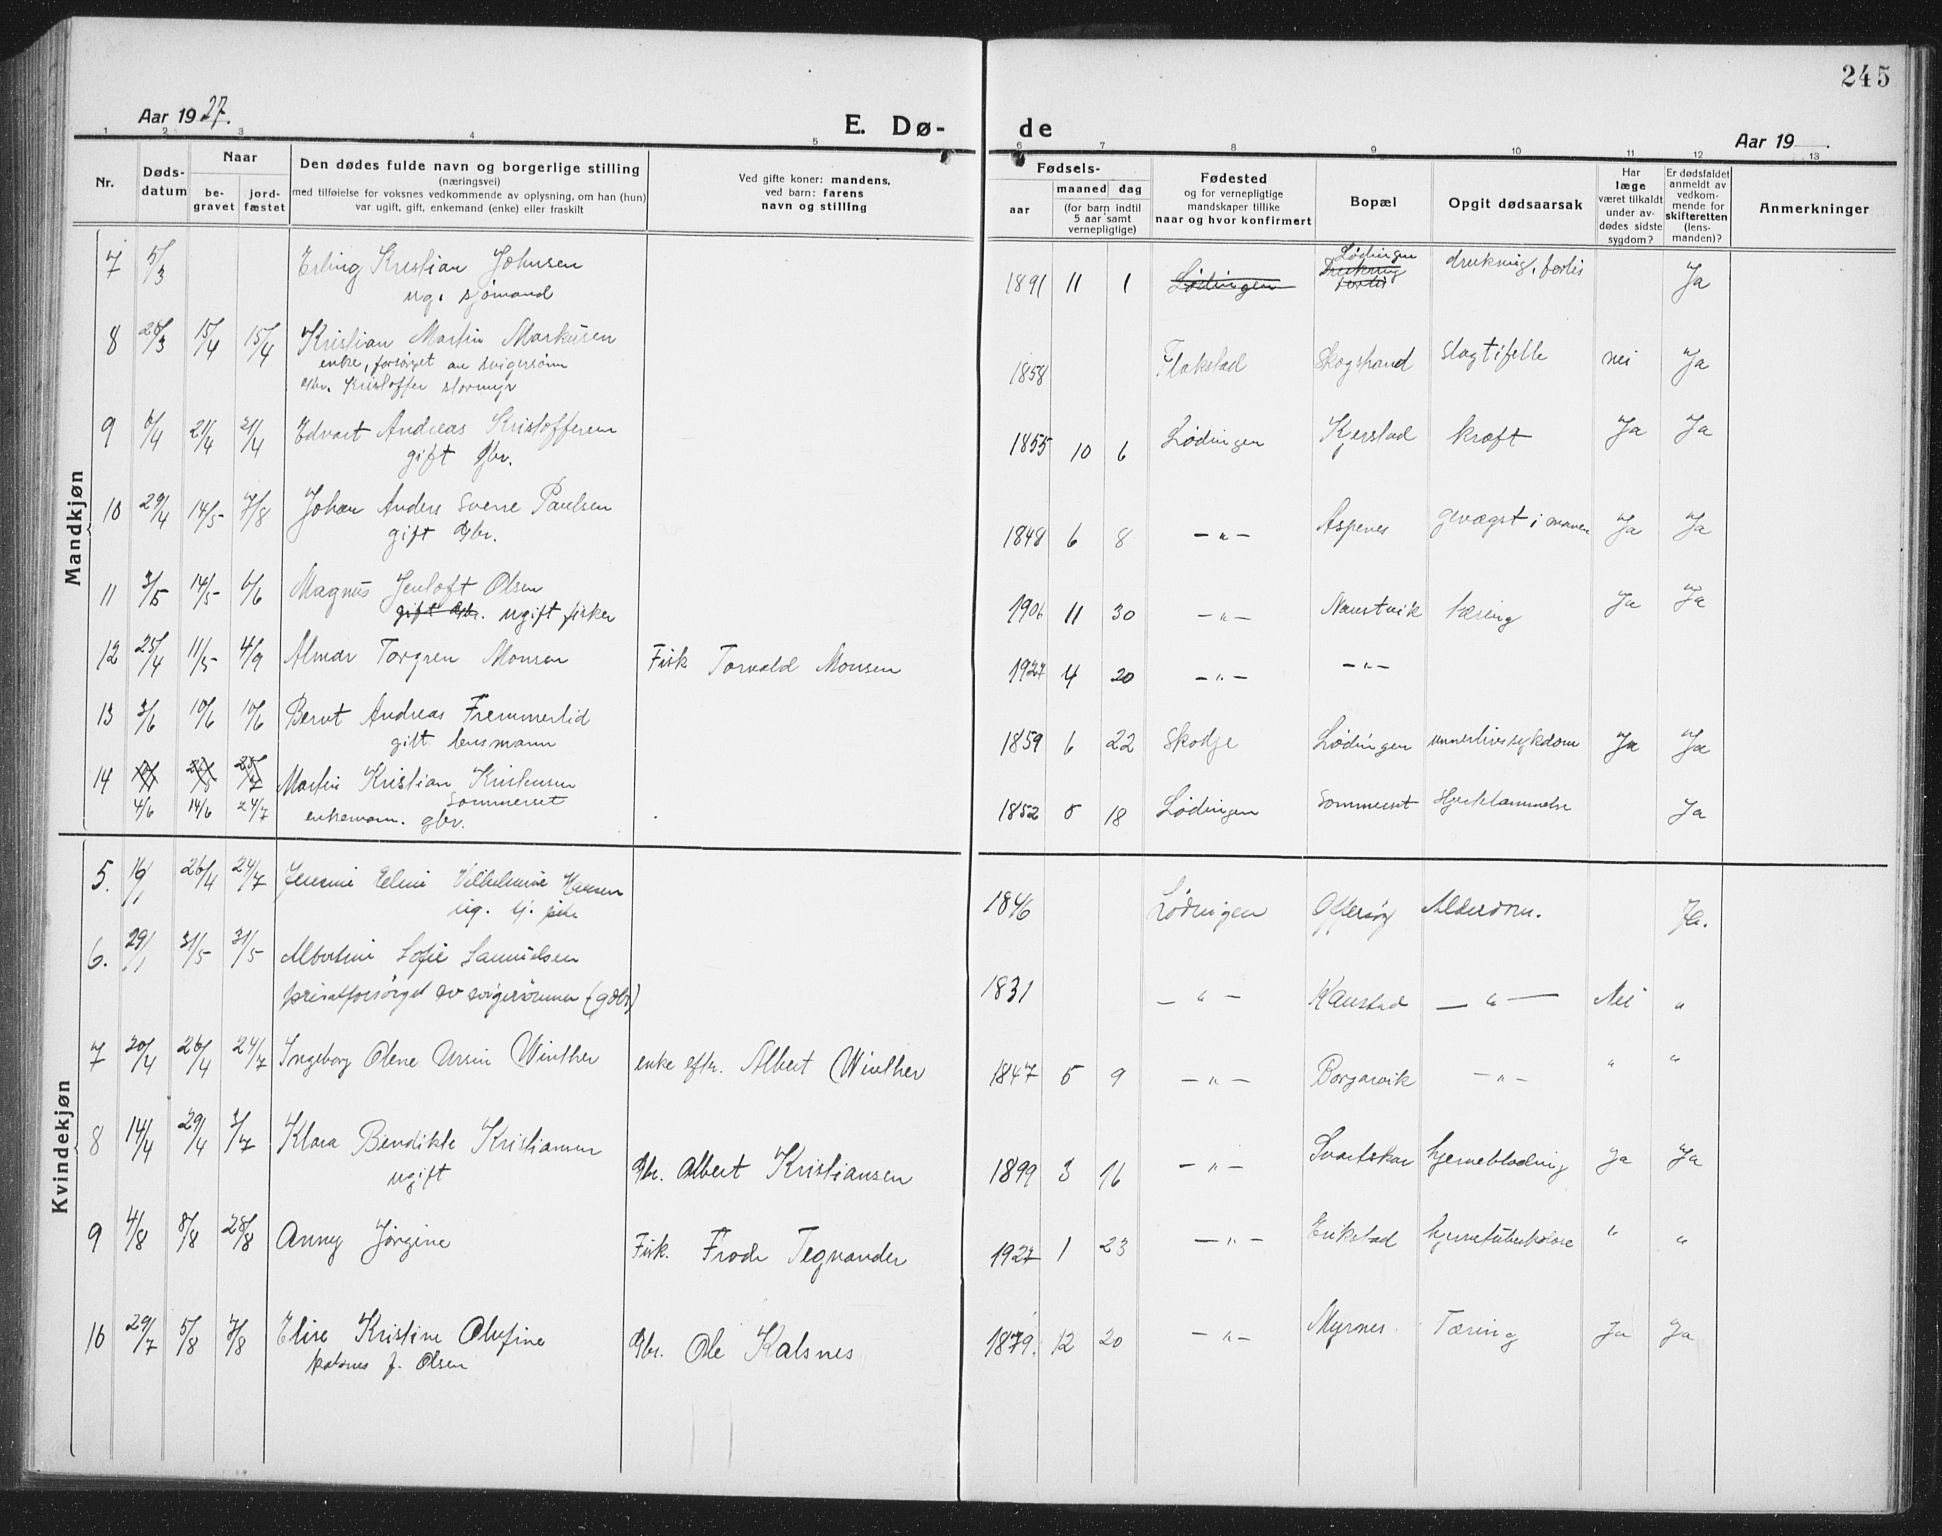 245
Aar 1927.
E. Dø-
de
Aar 19
1 2 3 4 5 6 7 8 9 10 11 12 13
Nr.
Døds-
datum
Naar
be-
gravet
jord-
fæstet
Den dødes fulde navn og borgerlige stilling
(næringsvei)
med tilføielse for voksnes vedkommende av oplysning, om han (hun)
var ugift, gift, enkemand (enke) eller fraskilt
Ved gifte koner: mandens,
ved barn: farens
navn og stilling
Fødsels-
aar
maaned
dag
(for barn indtil
5 aar samt
vernepligtige)
Fødested
og for vernepligtige
mandskaper tillike
naar og hvor konfirmert
Bopæl
Opgit dødsaarsak
Har
læge
været tilkaldt
under av-
dødes sidste
sygdom?
Er dødsfaldet
anmeldt av
vedkom-
mende for
skifteretten
(lens-
manden)?
Anmerkninger
Mandkjøn
7 5/3 Erling Kristian Johnsen 1891 11 1 Lødingen Lødingen drukning, forlis Ja
ug. sjømand
8 28/3 15/4 15/4 Kristian Martin Markusen 1858 Flakstad Skogstrand Slagtifelle nei Ja
enke, forsørget av svigersønn
Gbr. Kristoffer Stormyr
9 6/4 21/4 21/4 Edvart Andreas Kristoffersen 1855 10 6 Lødingen Kjerstad kræft Ja Ja
gift Gbr.
10 29/4 14/5 7/8 Johan Anders Sverre Paulsen 1848 6 8 — " — Aspenes gevægst i maven Ja Ja
gift Gbr.
11 3/5 14/5 6/6 Magnus Jenloft Olsen 1906 11 30 — " — Naustvik tæring Ja Ja
gift Gbr. ugift fisker
12 25/4 11/5 4/9 Almar Torgren Monsen Fisk Torvald Monsen 1927 4 20 — " — — " —
13 3/6 10/6 10/6 Bernt Andreas Fremmerlid 1859 6 22 Skodje Lødingen unnerlivssykdom Ja Ja
gift lensmann
14 4/6 14/6 24/7 Martin Kristian Kristensen 1852 5 18 Lødingen Sommerset Hjertelammelse Ja
Sommerset
enkemann. gbr.
Kvindekjøn
5. 16/1 26/4 24/7 Jensine Eline Vilhelmine Hansen 1846 Lødingen Offersøy Alderdom. Ja.
ug. tj. pike
6. 29/1 31/5 31/5 Albertine Sofie Samuelsen 1831 — " — Kanstad — " — Nei "
privatforsørget av svigersønnen (gdbr)
7 20/4 26/4 24/7 Ingeborg Olene Ursin Winther enke efter. Albert Winther 1847 5 9 — " — Borgarvik — " — " "
8 14/4 29/4 3/7 Klara Bendikte Kristiansen Gbr. Albert Kristiansen 1899 3 16 — " — Svartskar hjerneblødning Ja Ja
ugift
9 4/8 8/8 28/8 Anny Jørgine Fisk. Frode Tegnander 1927 1 23 — " — Erikstad hjernetuberkulose " "
10 29/7 5/8 7/8 Elise Kristine Olufine Gbr. Ole Kalsnes 1879. 12 20 — " — Myrnes. Tæring Ja Ja
Kalsnes f. Olsen